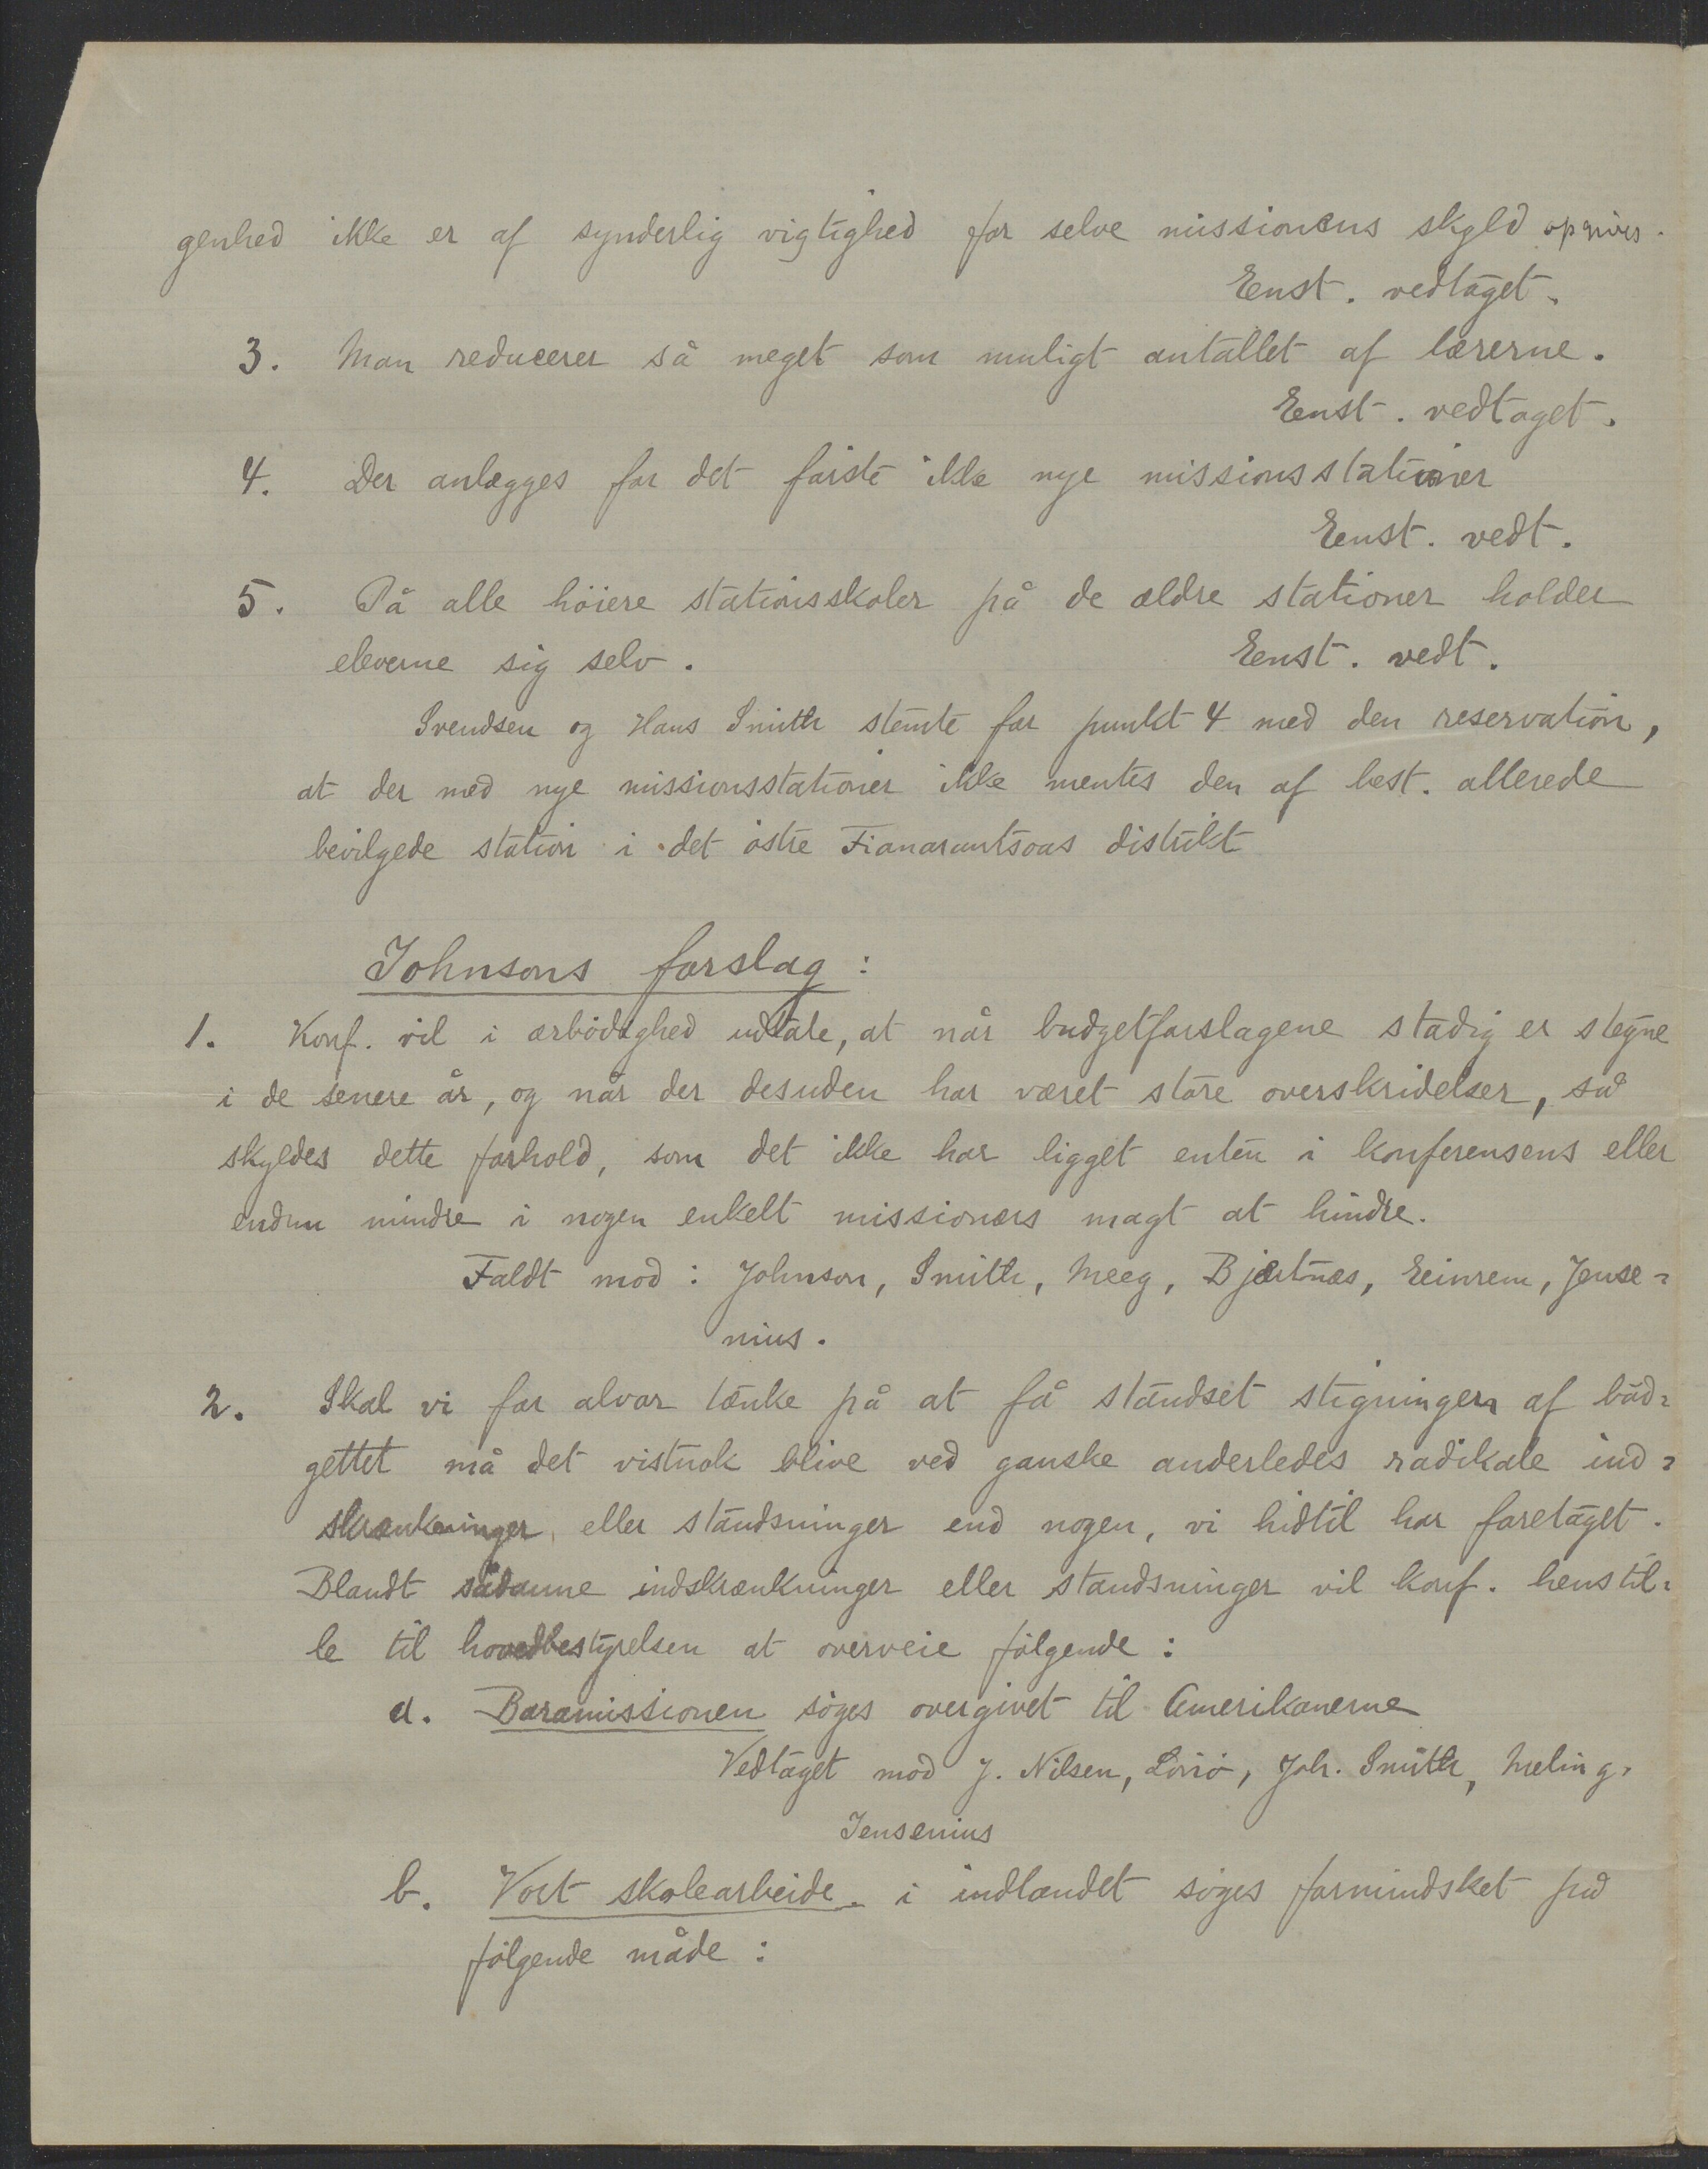 genhed ikke er af synderlig vigtighed for selve missionens skyld opgives.
Enst. vedtaget.
3. Man reducerer så meget som muligt antallet af lærerne.
Enst. vedtaget.
4. Der anlægges for det første ikke nye missionsstationer
Enst. vedt.
5. På alle höiere stationsskoler på de ældre stationer holder
eleverne sig selv. Enst. vedt.
Svendsen og Hans Smith stemte for punkt 4 med den reservation,
at der med nye missionsstationer ikke mentes den af best. allerede
bevilgede station i det östre Fianarantsoas distrikt
Johnsons forslag:
1. Konf. vil i ærbödighed udtale, at når budgetforslagene stadig er stegne
i de senere år, og når der desuden har været store overskridelser, så
skyldes dette forhold, som det ikke har ligget enten i konferensens eller
endnu mindre i nogen enkelt missionærs magt at hindre.
Faldt mod: Johnson, Smith, Meeg, Bjertnæs, Einrem, Jense-
nius.
2. Skal vi for alvor tænke på at få standset stigningen af büd-
gettet må det vistnok blive ved ganske anderledes radikale ind-
skrænkninger eller standsninger end nogen, vi hidtil har foretaget.
Blandt sådanne indskrænkninger eller standsninger vil konf. henstil-
le til hovedbestyrelsen at overveie fölgende:
a. Baramissionen söges overgivet til Amerikanerne
Vedtaget mod J. Nilsen, Lörö, Joh. Smith, Meling.
Jensenius
b. Vort skolearbeide i indlandet söges formindsket på
fölgende måde: